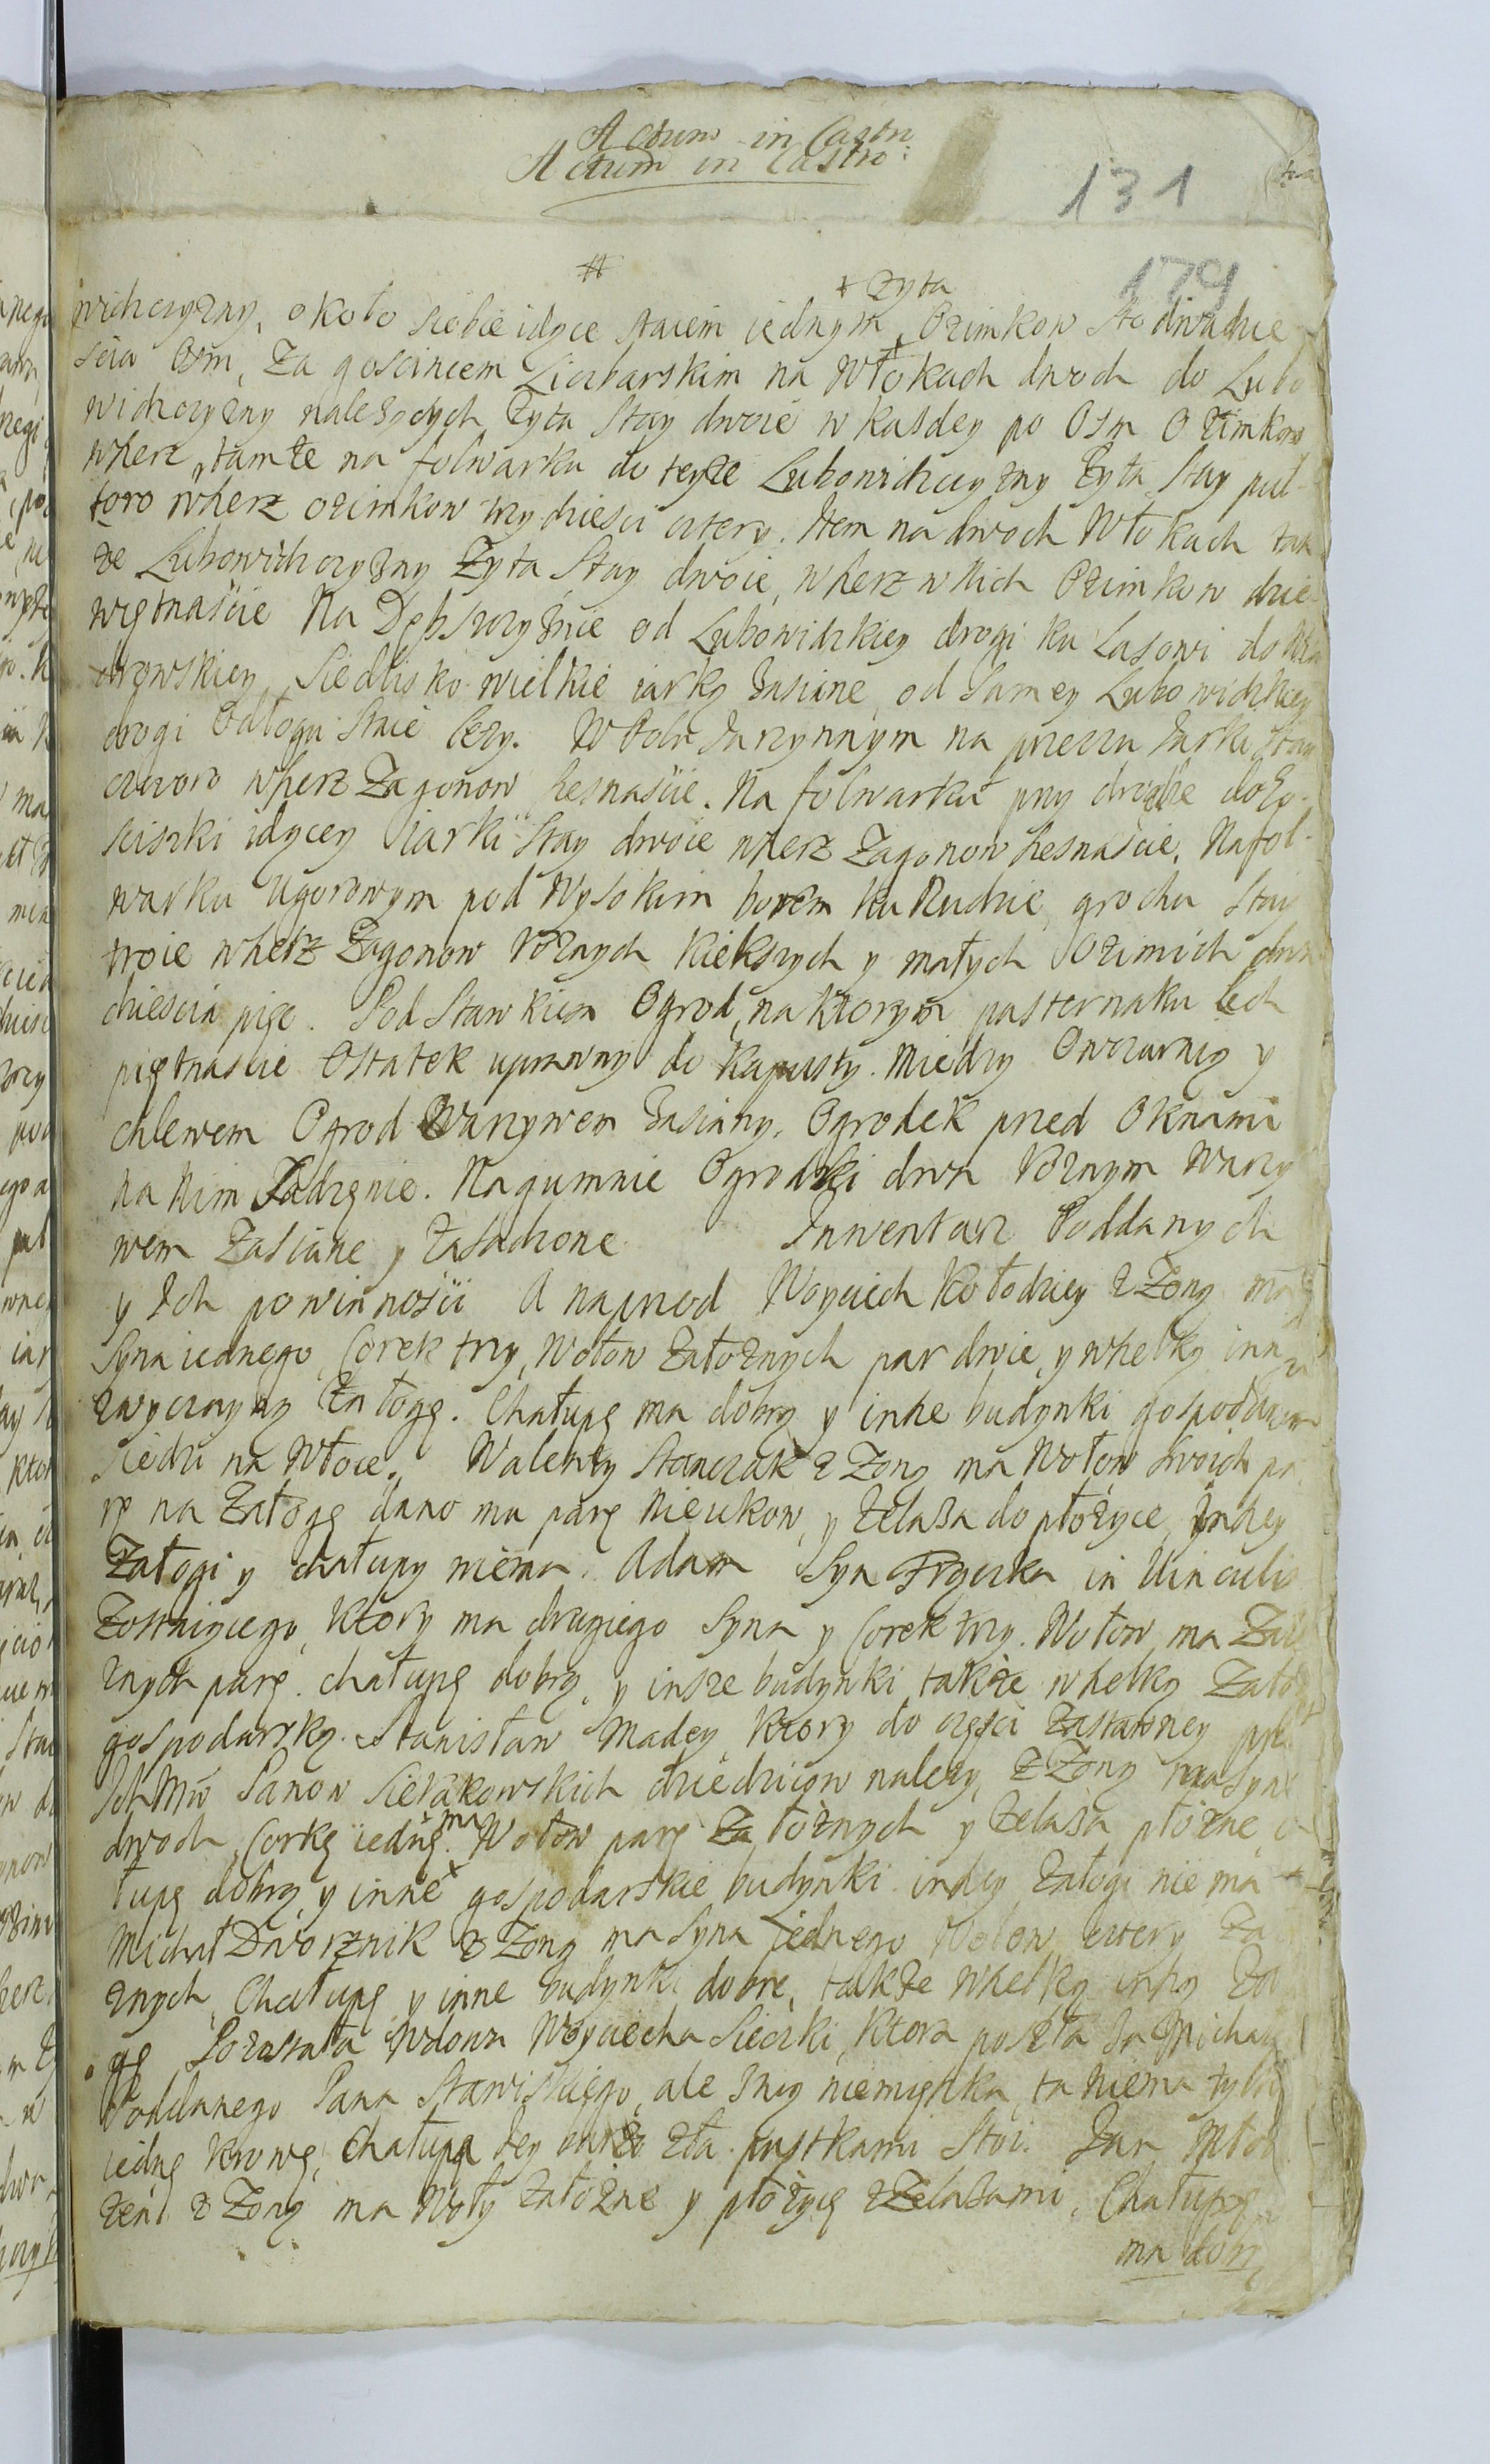 Actum in Castr
Actum in Castro:
131
179
#
+ Zyta
widczyzny, około siebie idące staiem iednym, Ozimkow sto dwadzie
scia Osm, Za goscincem Liczbarskim na Włokach dwoch do Lubo
widczyzny należących Zyta Stay dwoie w kazdey po Osm Ozimkow
wherz, tamże na folwarku do teyże Lubowidczyzny Zyta Stay puł-
toro wherz ozimkow trzydziesci cztery. Item na dwoch Włokach tak
ze Lubowidczyzny Zyta Stay dwoie, wherz w Nich Ozimkow dzie-
więtnascie Na Dębszczyznie od Lubowidzkiey drogi ku Lasowi do
orowskiey Siedlisko wielkie iarką zasiane, od Samey Lubowidzkiey
drogi Odłogu Staie leży. W Polu Jarzynnym na przecu Jarki Stay
czworo wherz Zagonow szesnascie. Na folwarku przy drodze do Zo-
sciszki idącey iarki Stay dwoie wherz Zagonow szesnascie. Na fol-
warku Ugorowym pod Wysokim borem ku Rudzie grochu Stay
troie wherz Zagonow Roznych Większych y małych Ozimich dwa
dziescia pięc. Pod Stawkiem Ogrod, na ktorym pasternaku Lech
piętnascie Ostatek uprawny do kapusty. Miedzy Owczarnią y
chlewem Ogrod Warzywem Zasiany. Ogrodek przed Oknami
na Nim Zadzęnie. Na gumnie Ogrodki dwa Roznym Warzy
wem Zasiane y Zasadzone Inwentarz Poddanych
y Ich powinnosci A naprzod Woyciech Kołodziey z Zoną ma
Syna iednego, Corek trzy, Wołow Załoznych par dwie, y wszelką inną
zwyczayną Załogę. Chałupę ma dobrą y insze budynki gospodar
siedzi na Włoce. Walenty Stanczak z Zoną ma Wołow swoich pa
rę na Załogę dano mu parę Nieukow, y Zelaza do płożyce, inszey
Załogi y chałupy niema. Adam Syn Fryczka in Vinculis
Zostaiącego, ktory ma drugiego Syna y Corek trzy. Wołow ma Zało
znych parę. chałupę dobrą, y insze budynki, także wszelką Załog
gospodarską. Stanisław Madey, ktory do częsci Zastawney prze
Ich Mw Panow Sierakowskich dziedzicow należy, z Zoną ma Syno
dwoch, Corkę iednę. ma Wołow parę Załoznych y Zelaza płozne, cha
łupę dobrą, y inne gospodarskie budynki inszey Załogi nie ma
Michał Dworznik z Zoną ma Syna iednego Wołow cztery Zało
znych, Chałupę y inne budynki dobre, także wszelką inszą Zało
gę Pozostała Wdowa Woyciecha Sieczki, ktora poszła za Michała
Poddanego Pana Stawiskiego, ale Znią niemięszka, ta Niema tylko
iednę krowę, Chałupa tey barzo zła pustkami Stoi. Jan Młod
zeni z Zoną ma Woły Załozne y płożycę z Zelazami. Chałupę
ma dobrą